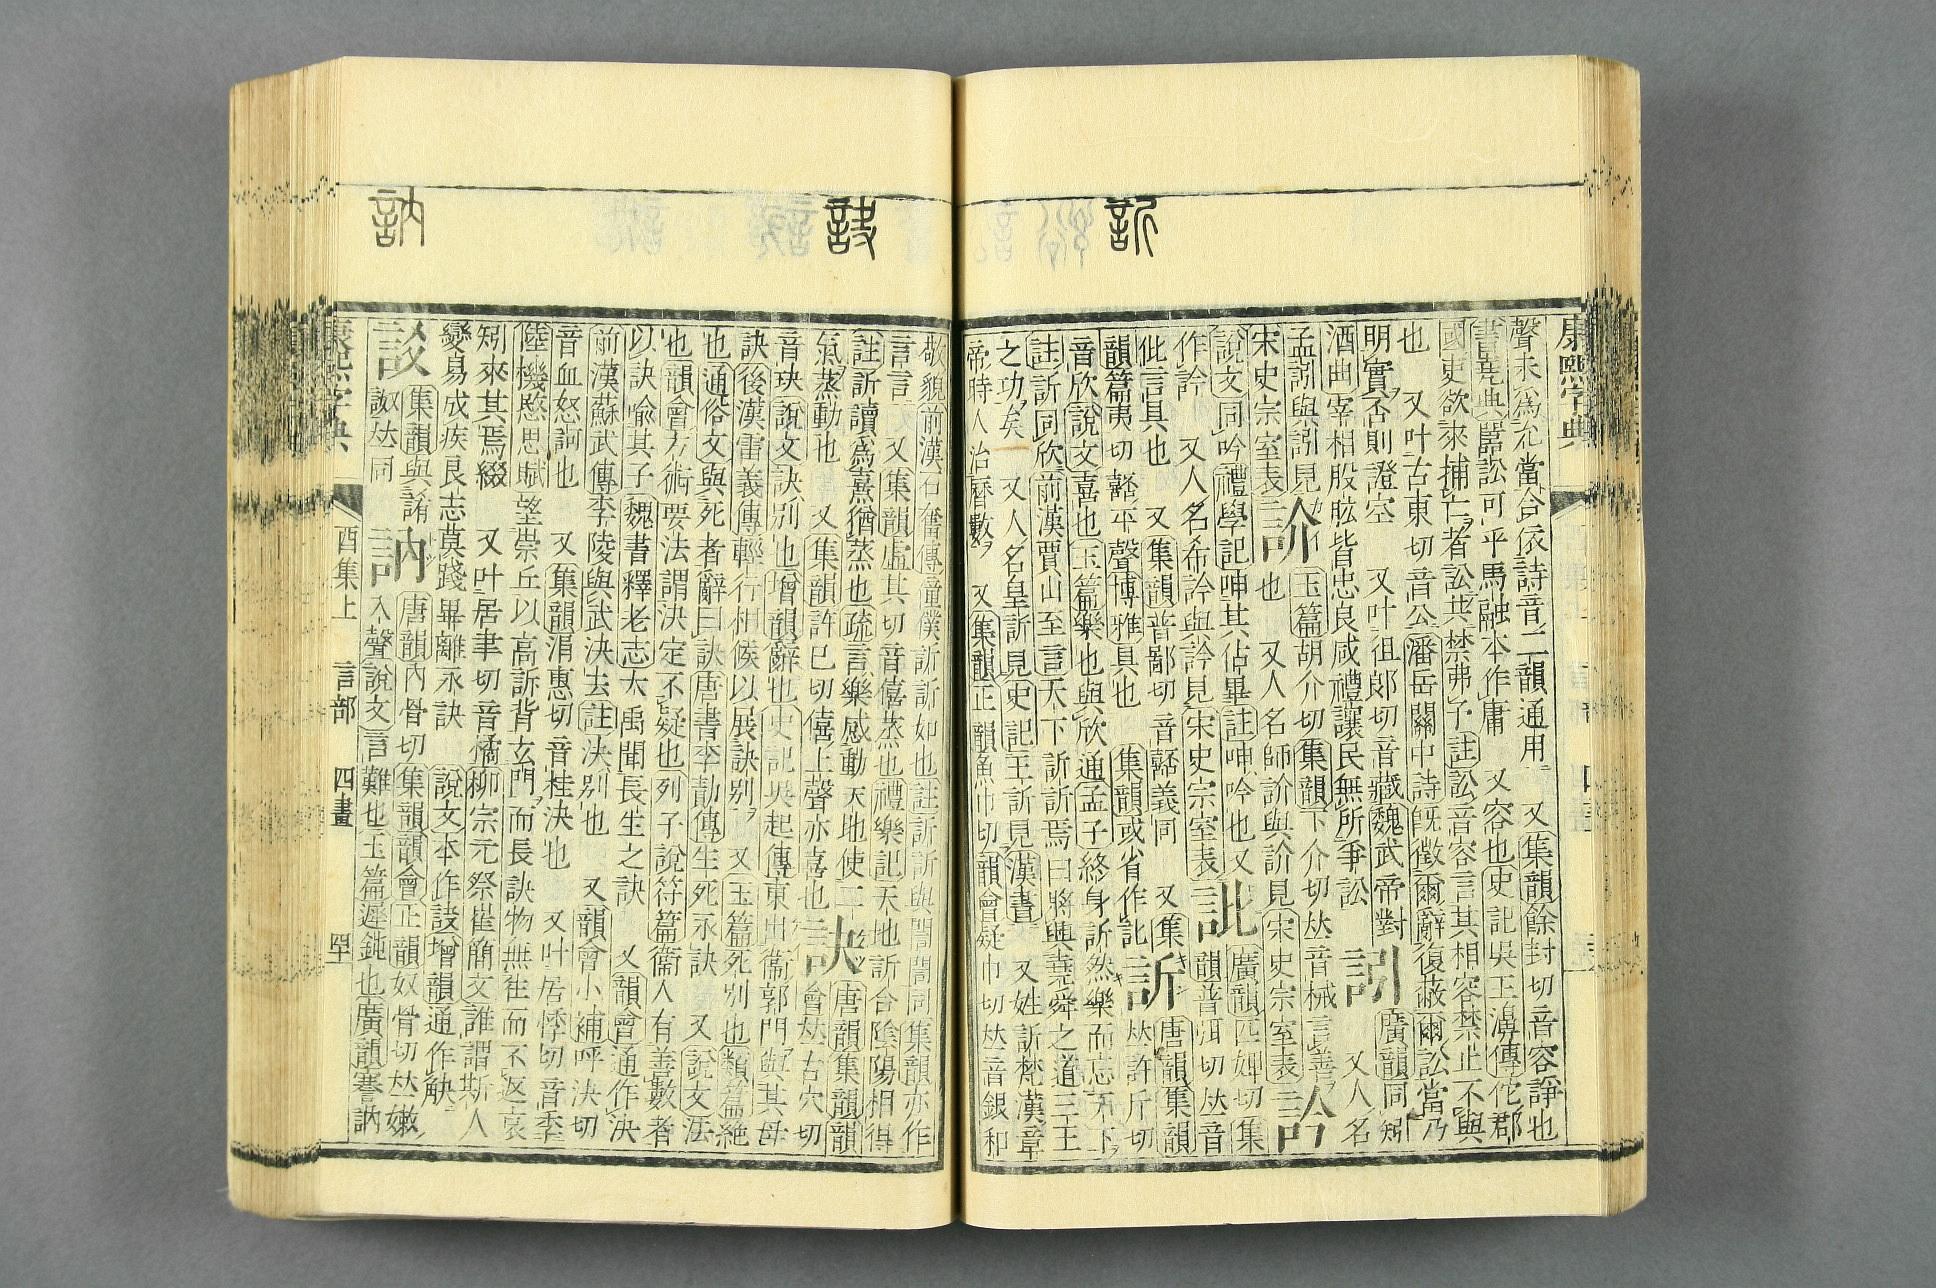 訢
康熙字典
聲未爲允當合依詩音二韻通用 又集韻餘封切音容諍也
書堯典嚚訟可乎馬融本作庸 又容也史記吳王濞傳佗郡
國吏欲來捕亡者訟共禁弗予註訟音容言其相容禁止不與
也 又叶古東切音公潘岳關中詩旣徵爾辭復蔽爾訟當乃
明實否則證空 又叶徂郞切音藏魏武帝對
酒曲宰相股肱皆忠良咸禮讓民無所爭訟
訠
廣韻同矧
又人名
孟訠與訠見
宋史宗室表
訃
玉篇胡介切集韻下介切𠀤音械言善
也 又人名師訃與訃見宋史宗室表
訡
說文同吟禮學記呻其佔畢註呻吟也又
作訡 又人名布訡與訡見宋史宗室表
訿
廣韻匹婢切集
韻普洱切𠀤音
仳言具也 又集韻普鄙切音嚭義同 又集
韻篇夷切嚭平聲博雅具也 集韻或省作訨
訢
唐韻集韻
𠀤許斤切
音欣說文喜也玉篇樂也與欣通孟子終身訢然樂而忘天下
註訢同欣前漢賈山至言天下訢訢焉曰將興堯舜之道三王
之功矣 又人名皇訢見史記王訢見漢書 又姓訢梵漢章
帝時人治曆數 又集韻正韻魚巾切韻會疑巾切𠀤音銀和
訣
訥
敬貌前漢石奮傳僮僕訢訢如也註訢訢與誾誾同集韻亦作
言言 又集韻虛其切音僖蒸也禮樂記天地訢合陰陽相得
註訢讀爲熹猶蒸也疏言樂感動天地使二
氣蒸動也 又集韻許已切僖上聲亦喜也
訣
唐韻集韻韻
會𠀤古穴切
音玦說文訣別也增韻辭也史記吳起傳東出衞郭門與其母
訣後漢雷義傳輕行相候以展訣別 又玉篇死別也類篇絕
也通俗文與死者辭曰訣唐書李勣傳生死永訣 又說文法
也韻會方術要法謂決定不疑也列子說符篇衞人有善數者
以訣喩其子魏書釋老志大禹聞長生之訣 又韻會通作決
前漢蘇武傳李陵與武決去註決別也 又韻會小補呼決切
音血怒訶也 又集韻涓惠切音桂決也 又叶居悸切音季
陸機愍思賦望崇丘以高訴背玄門而長訣物無往而不返哀
矧來其焉綴 又叶居聿切音橘柳宗元祭崔簡文誰謂斯人
變易成疾良志莫踐畢離永訣 說文本作䛎增韻通作觖
䚳
集韻與誵
詉𠀤同
訥
唐韻內骨切集韻韻會正韻奴骨切𠀤嫩
入聲說文言難也玉篇遲鈍也廣韻謇訥
康熙字典
酉集上 言部 四畫